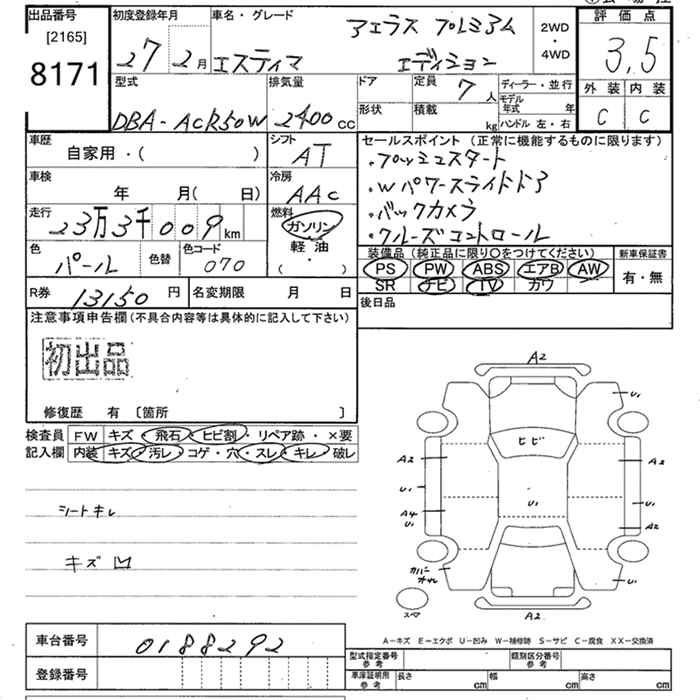 出品番号
[2165]
8171
初度登録年月
27 2月
車名・グレード
アエラス プレミアム
エスティマ エディション
2WD
・
4WD
評価点
3.5
外装 内装
C C
型式
DBA-ACR50W
排気量
2400cc
ドア
形状
定員
7人
積載
kg
ディーラー・並行
モデル年式 年
ハンドル 左・右
車歴
自家用・( )
シフト
AT
車検
年 月( 日)
冷房
AAC
走行
23万3千009km
燃料
ガソリン
軽油
( ・ )
色
パール
色替
色コード
070
R券
13150円
名変期限 月 日
セールスポイント (正常に機能するものに限ります)
・プッシュスタート
・Wパワースライドドア
・バックカメラ
・クルーズコントロール
装備品(純正品に限り○をつけてください)
PS PW ABS エアB AW
SR ナビ TV カワ
新車保証書
有・無
後日品
注意事項申告欄(不具合内容等は具体的に記入して下さい)
初出品
修復歴 有 〔箇所 〕
検査員 FW キズ・飛石・ヒビ割・リペア跡・×要
記入欄 内装 キズ・汚レ・コゲ・穴・スレ・キレ・破レ
シートキレ
キズ 凹
A2
U1
ヒビ
A2 A2
U1 U1 U1
A4 A2
U1
カバー
キレ
U1
スペア
A2
車台番号
0188292
登録番号
A-キズ E-エクボ U-凹み W-補修跡 S-サビ C-腐食 XX-交換済
型式指定番号
参考
類別区分番号
参考
車庫証明用
参考
長さ cm 幅 cm 高さ cm